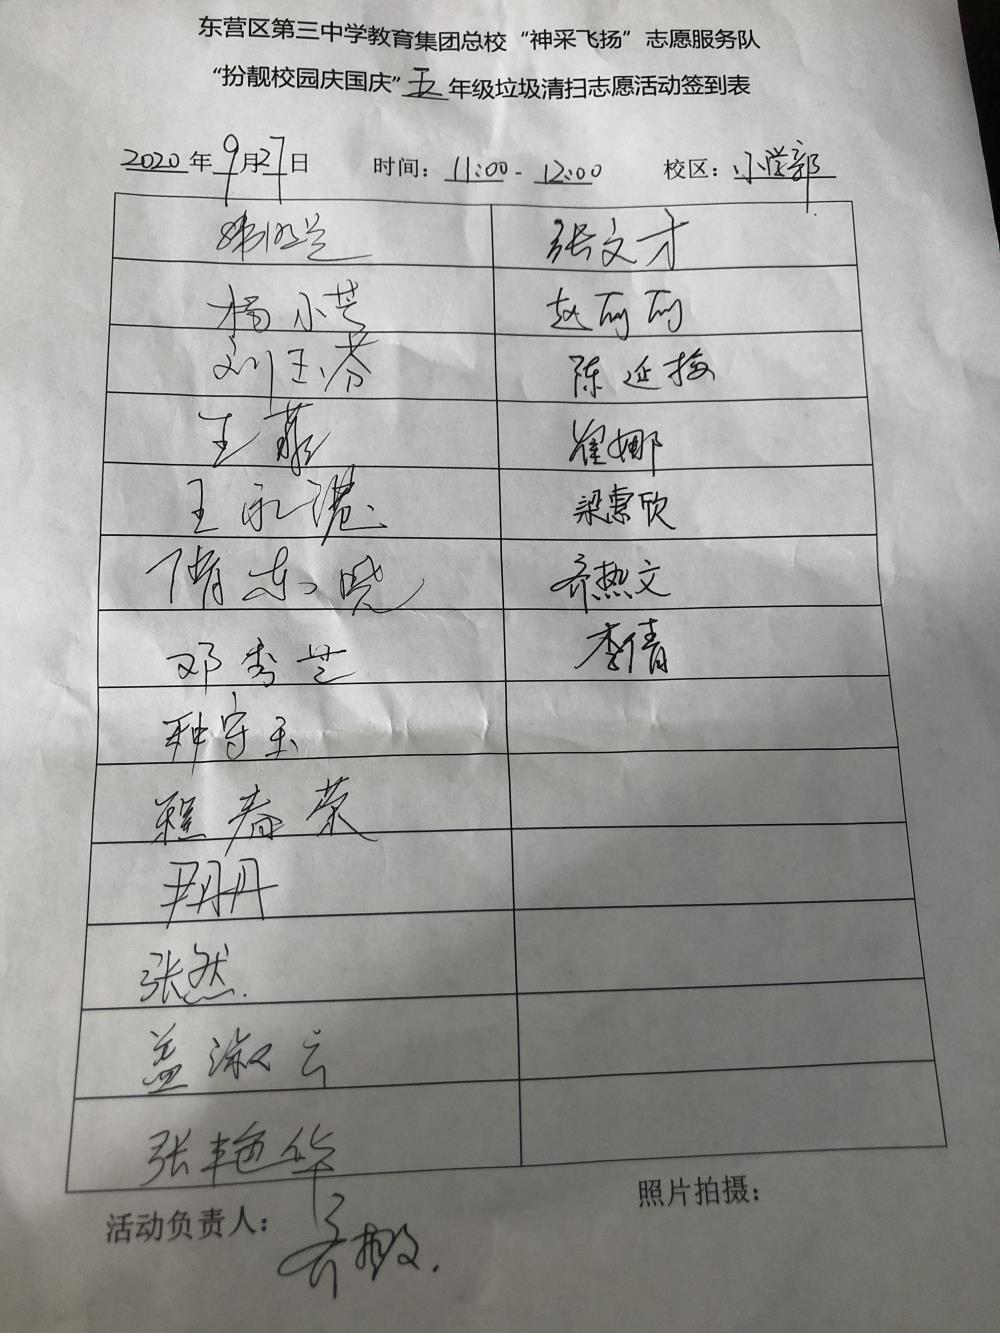 东营区第三中学教育集团总校“神采飞扬”志愿服务队
“扮靓校园庆国庆”五年级垃圾清扫志愿活动签到表
2020年9月27日 时间：11:00-12:00 校区：小学部
张文才
杨小芸 赵丽丽
刘玉芬 陈延梅
王燕 翟娜
王永港 梁惠欣
隋东晓 齐热文
邓秀芝 李倩
种守玉
程春荣
尹丹丹
张然
盖淑云
张艳华
照片拍摄：
活动负责人：